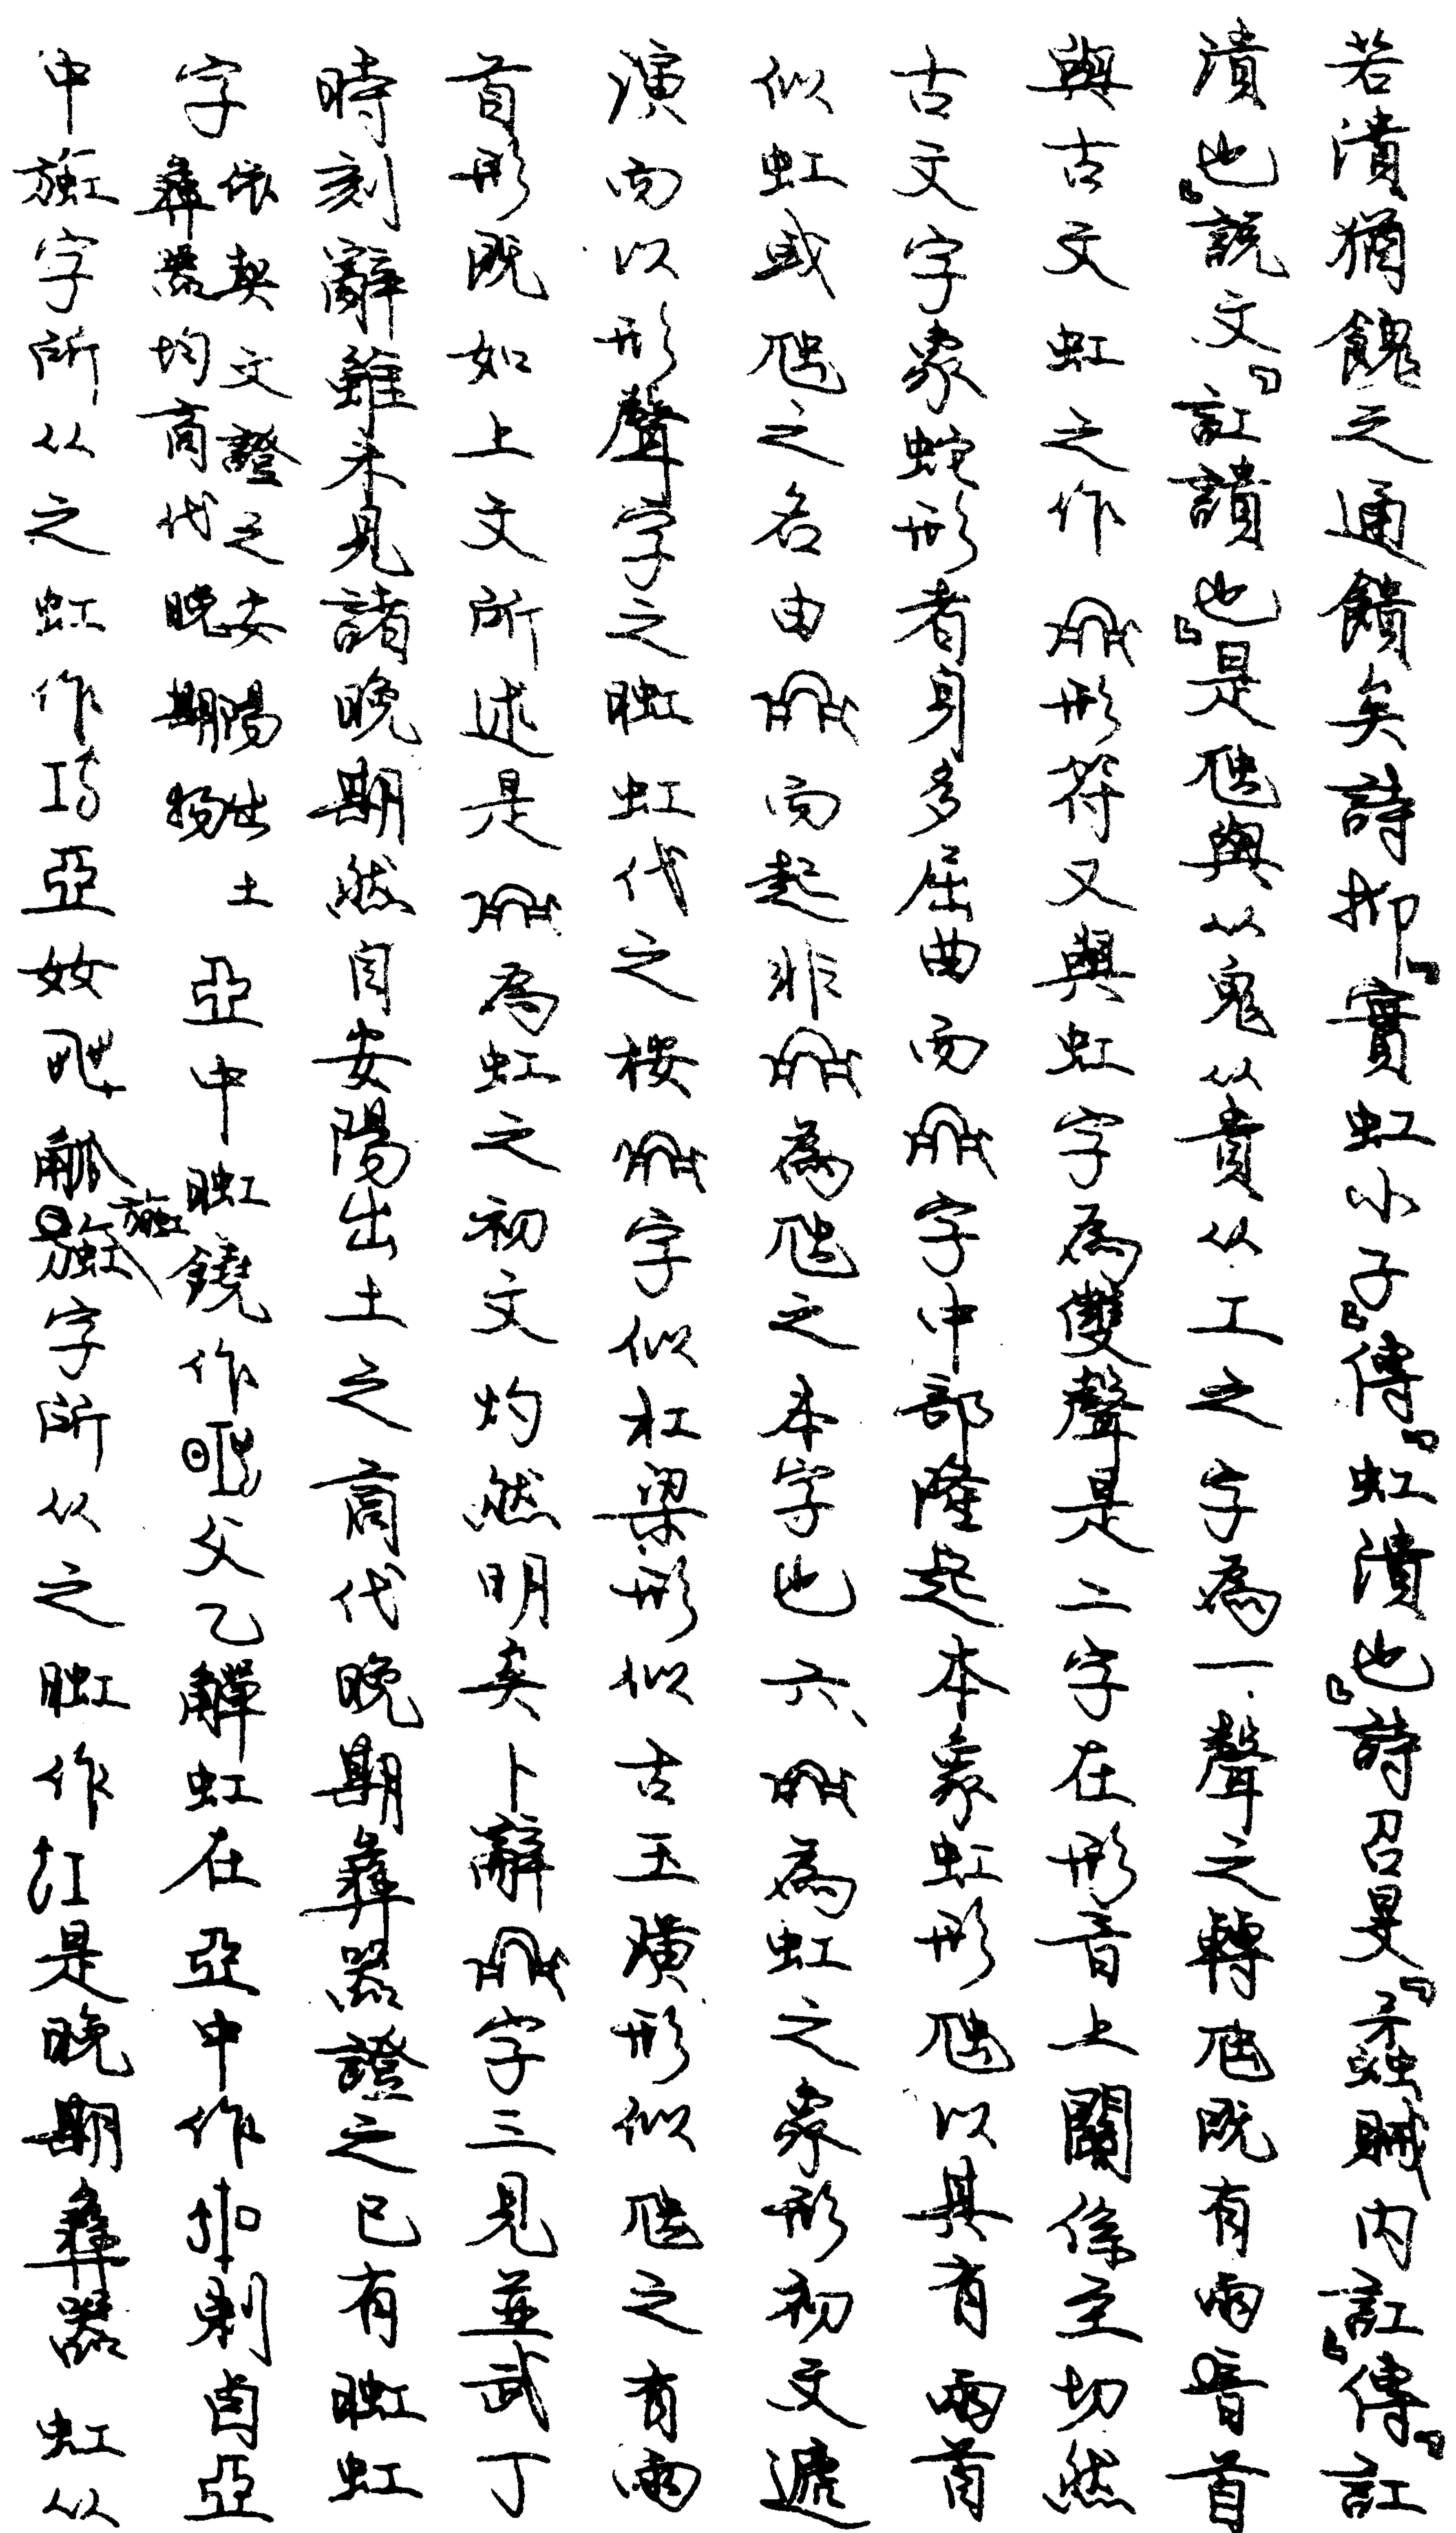 若潰猶餽之通饋矣詩抑『實虹小子』傳『虹潰也』詩召旻『蟊賊內訌』傳『訌
潰也』說文『訌讃也』是虺與从鬼从貴从工之字為一聲之轉虺既有兩首
與古文虹之作形符又與虹字為雙聲是二字在形音上關係至切然
古文字象蛇形者身多屈曲而字中部隆起本象虹形虺以其有兩首
似虹或虺之名由而起非為虺之本字也六、為虹之象形初文遞
演而以形聲字之䖤虹代之桉字似杠梁形似古玉璜形似虺之有兩
首形既如上文所述是為虹之初文灼然明矣卜辭字三見並武丁
時刻辭雖未見諸晚期然自安陽出土之商代晚期彝器證之已有虹
字依契文證之安陽出土彝器均商代晚期物亞中鐃作父乙觶虹在亞中作剌卣亞
中字所从之虹作亞妀觚字所从之作是晚期彝器虹从